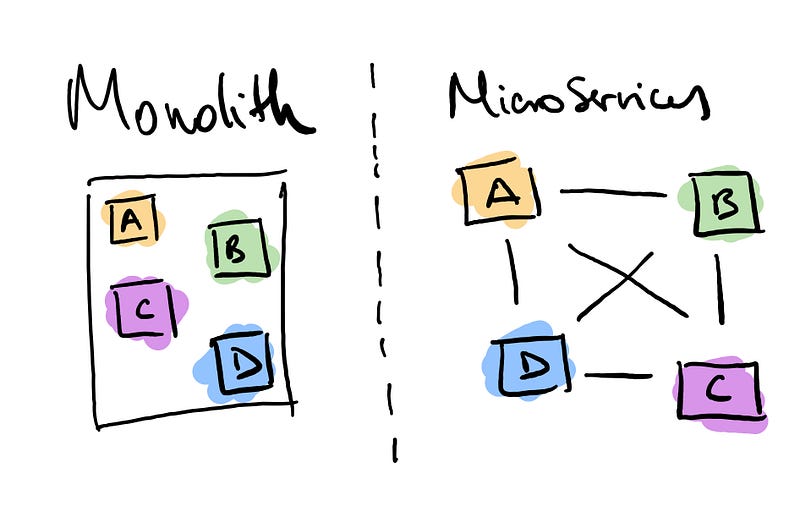 Monolith
A
B
C
D
MicroServices
A
B
D
C